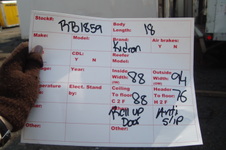 Stock#: RB1859 Body Length: 18
Make: Model: Brand: Kidron Air brakes: Y N
CDL: Y N Reefer Model:
Year: Inside Width: (W) 88 Outside Width: (W) 94
Temperature Elect. Stand by: Ceiling To floor: 88 Header To floor 76
Y N Roll up Door Anti slip
Other: